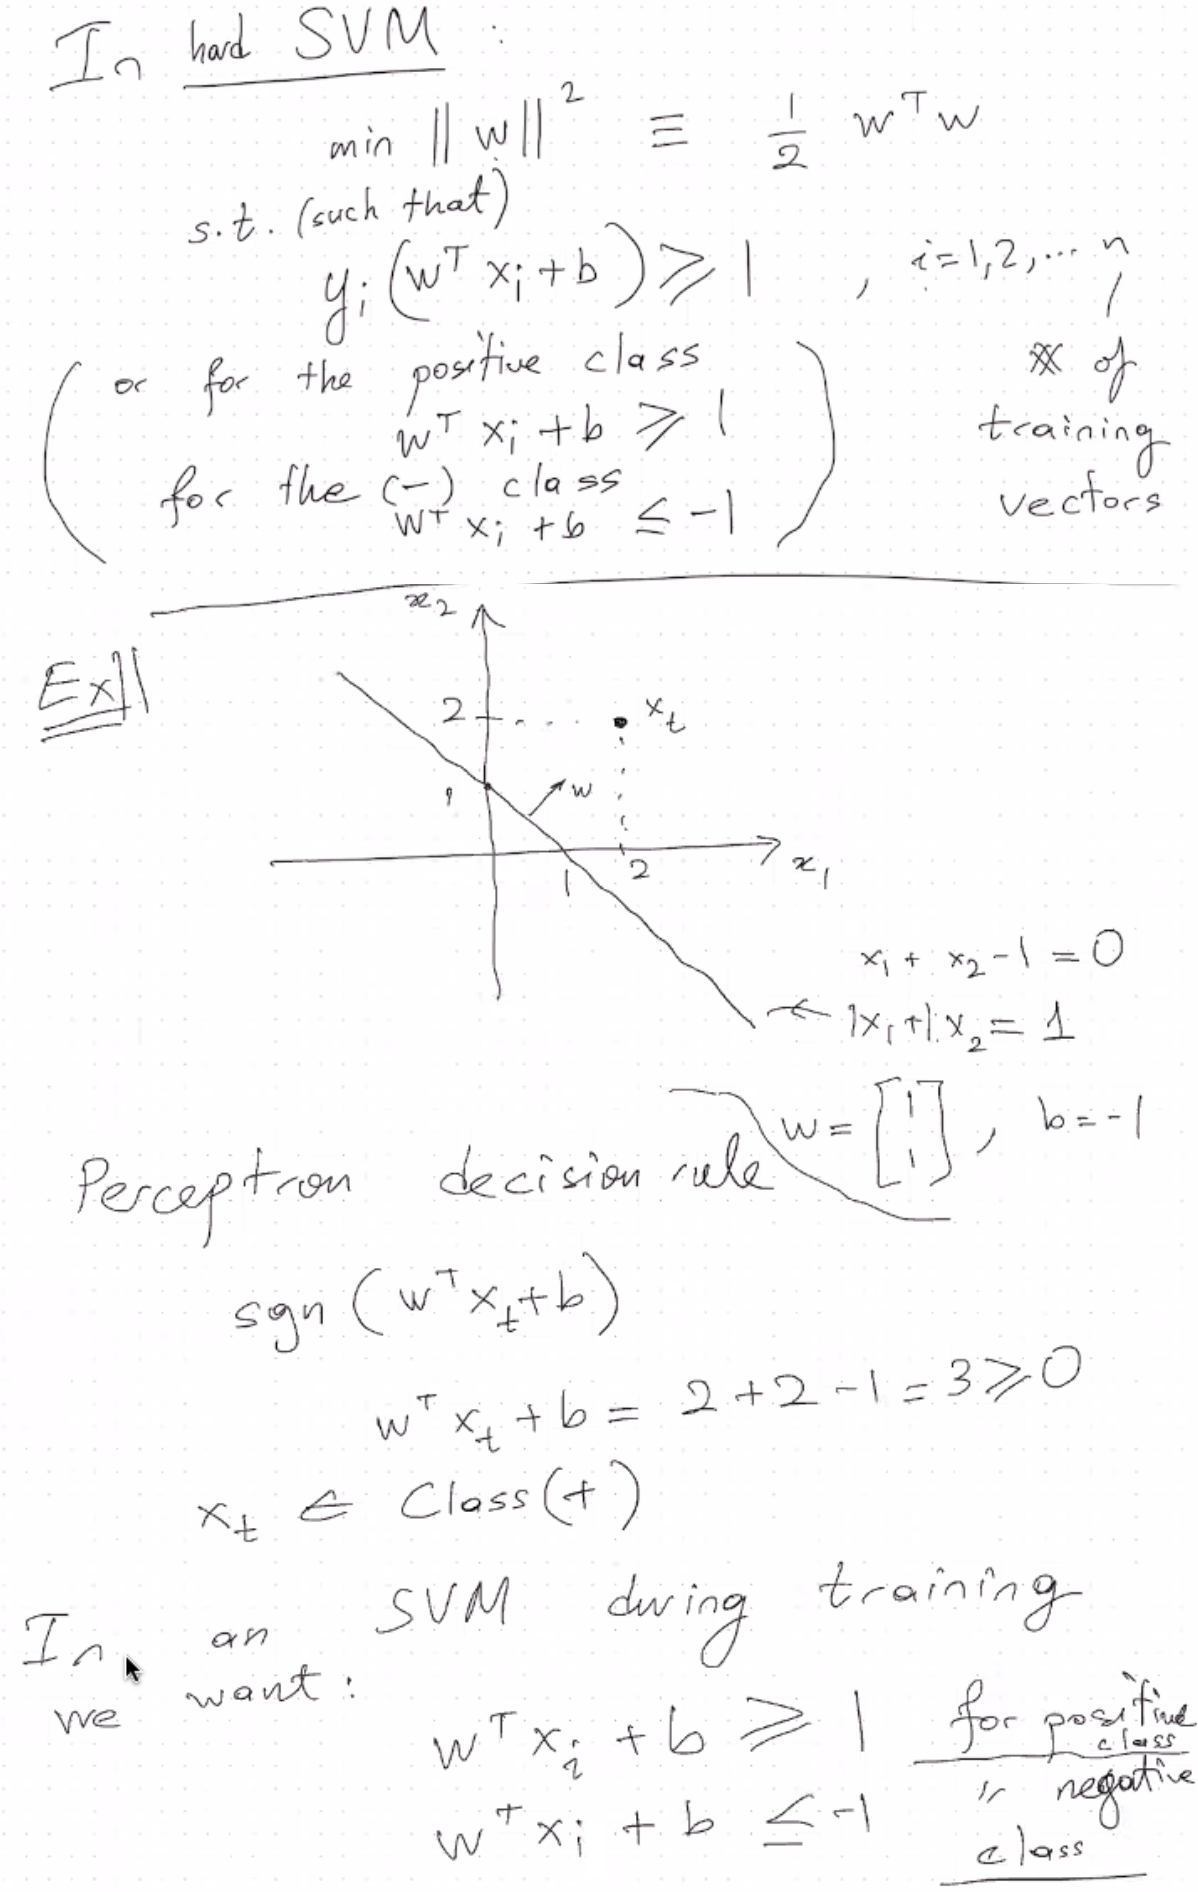 In hard SVM :
min ||w||² ≡ 1/2 wᵀw
s.t. (such that)
yᵢ (wᵀ xᵢ + b) ⩾ 1 , i=1,2,... n
# of training vectors
( or for the positive class
wᵀ xᵢ + b ⩾ 1
for the (-) class
wᵀ xᵢ + b ≤ -1 )
Ex//
x₂
2 xₜ
1 w
1 2 x₁
x₁ + x₂ - 1 = 0
← 1x₁ + 1.x₂ = 1
w = [1 1] , b = -1
Perceptron decision rule
sgn (wᵀ xₜ + b)
wᵀ xₜ + b = 2 + 2 - 1 = 3 ⩾ 0
xₜ ∈ Class (+)
In an SVM during training
we want :
wᵀ xᵢ + b ⩾ 1 for positive class
wᵀ xᵢ + b ≤ -1 " negative class